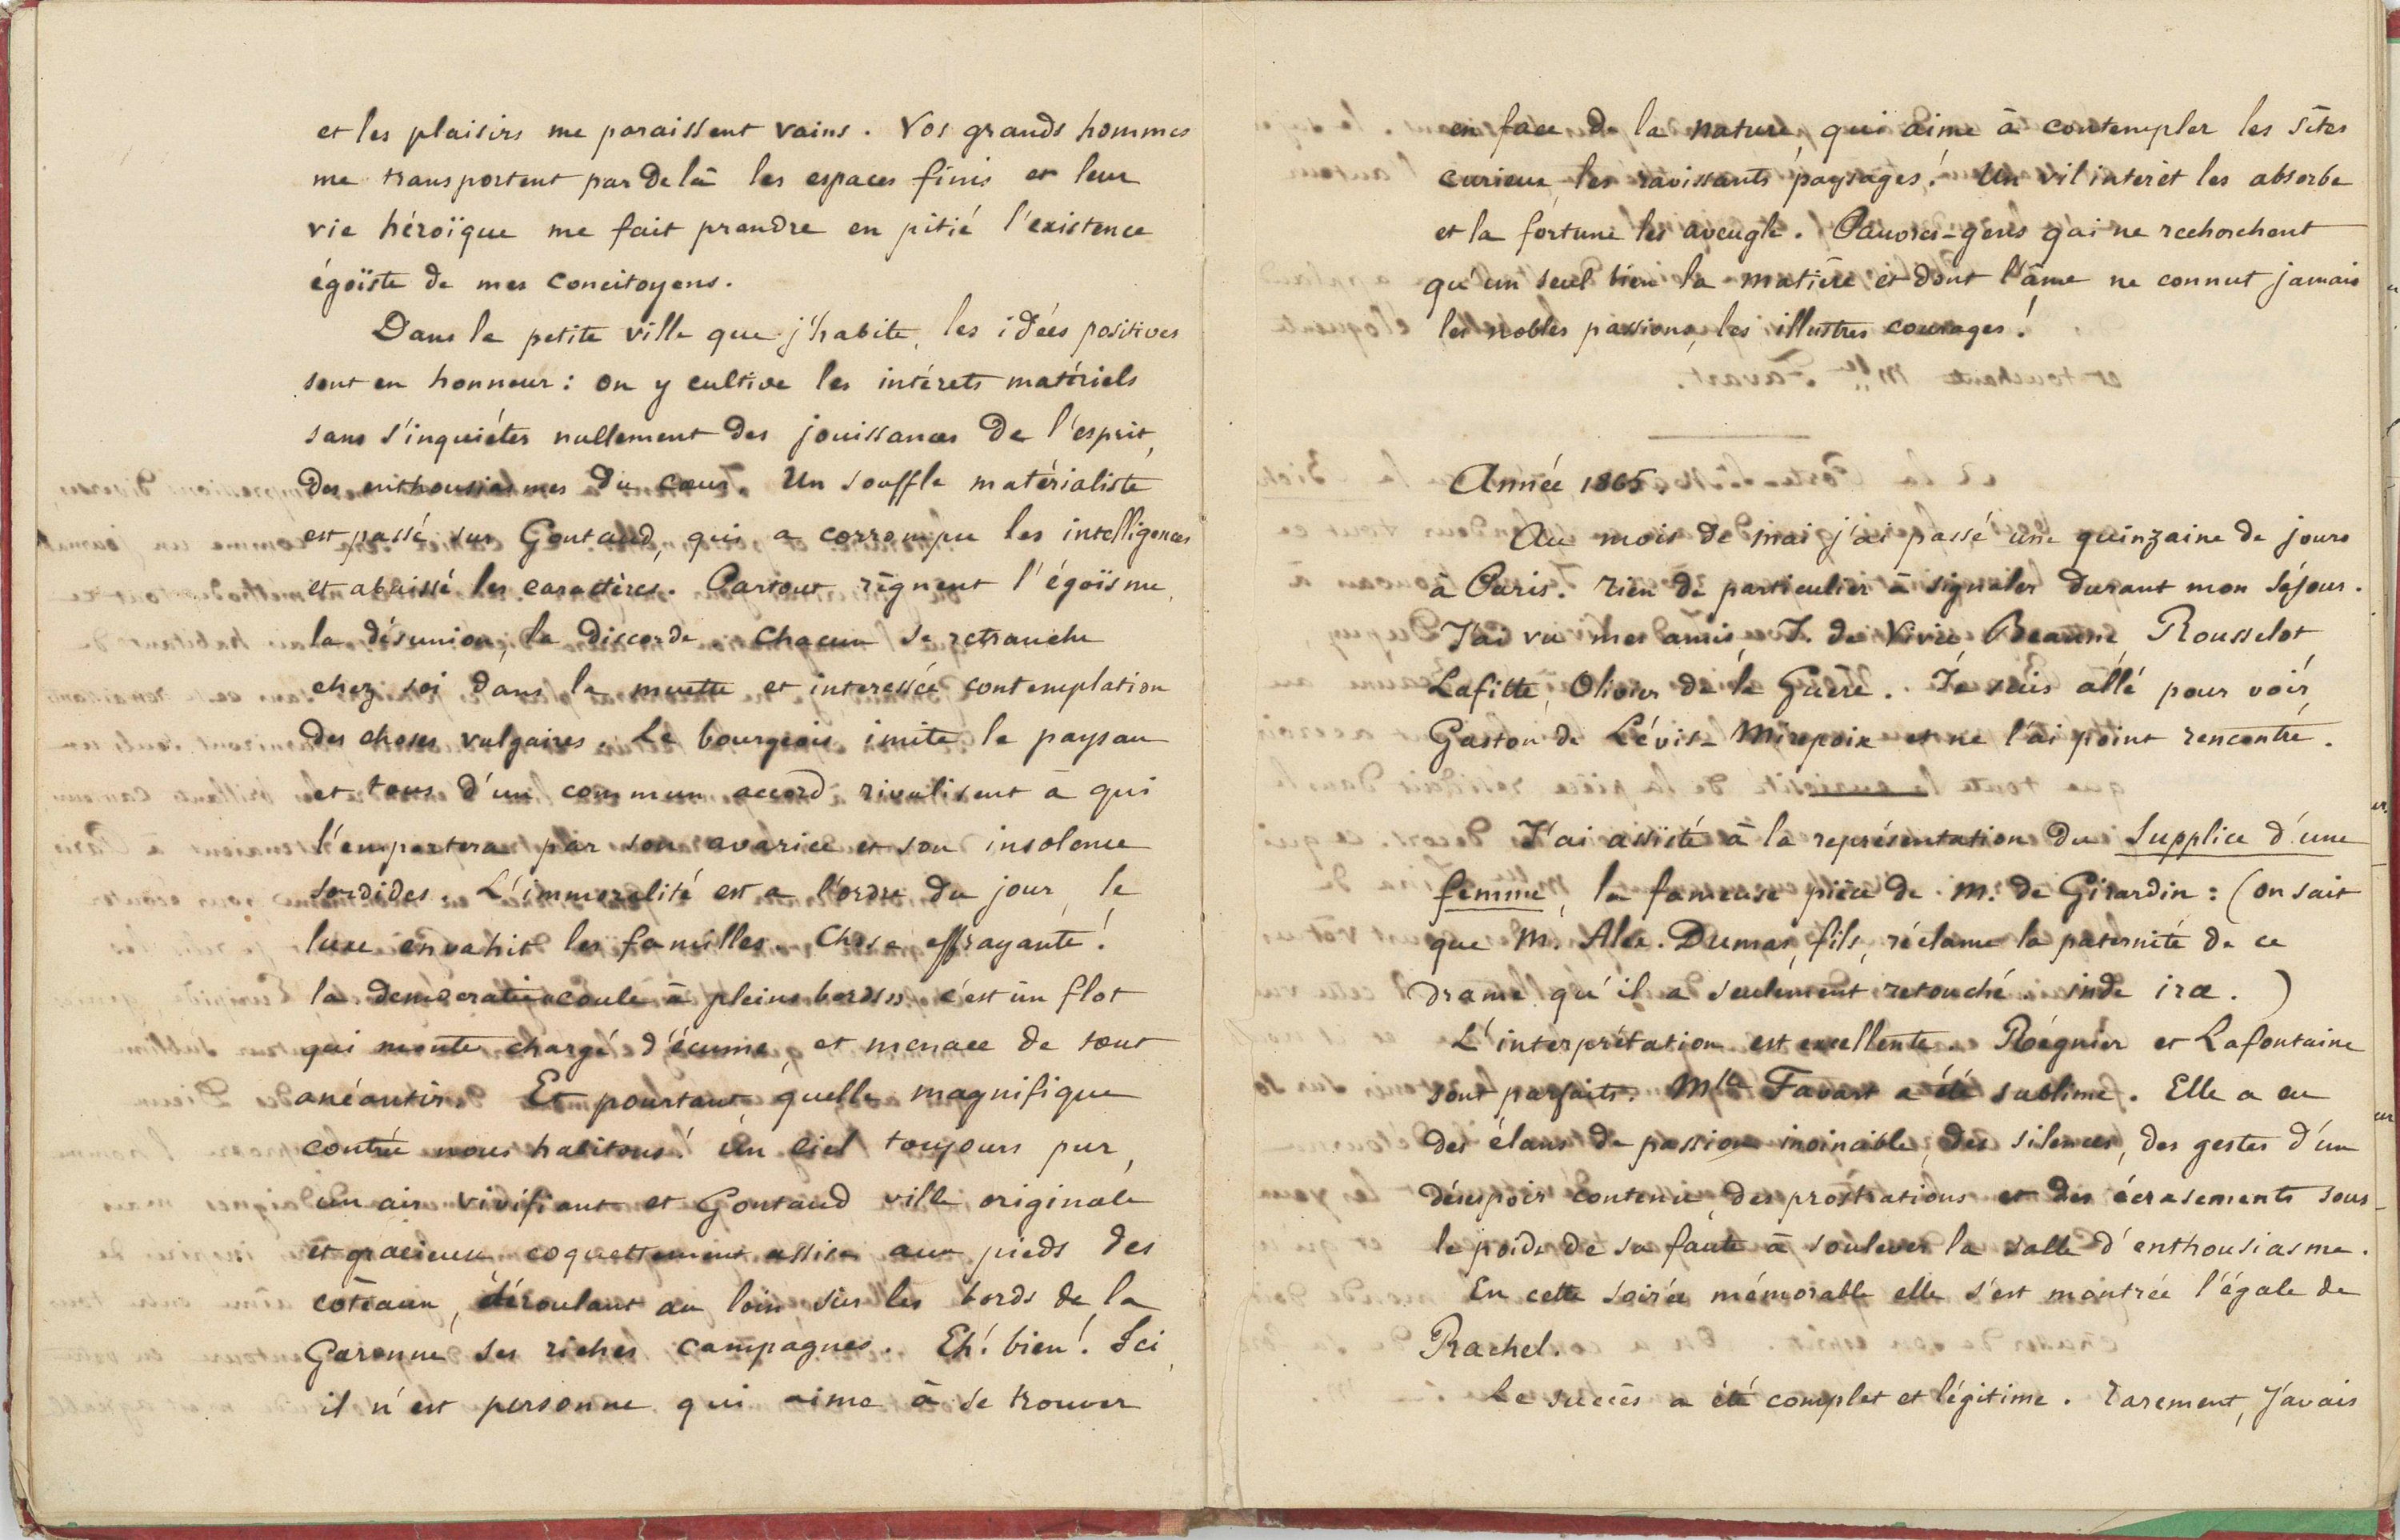 et les plaisirs me paraissent vains. Vos grands hommes
me transportent par delà les espaces finis et leur
vie héroïque me fait prendre en pitié l'existence
égoïste de mes concitoyens.
Dans la petite ville que j'habite, les idées positives
sont en honneur : on y cultive les intérets matériels
sans s'inquiéter nullement des jouissances de l'esprit,
des enthousiasmes du cœur. Un souffle matérialiste
est passé sur Gontaud, qui a corrompu les intelligences
et abaissé les caractères. Partout règnent l'égoïsme,
la désunion, la discorde. Chacun se retranche
chez soi dans la muette et interessée contemplation
des choses vulgaires. Le bourgeois imite le paysan
et tous d'un commun accord rivalisent à qui
l'emportera par son avarice et son insolence
sordides. L'immoralité est a l'ordre du jour, le
luxe envahit les familles. Chose effrayante !
la democratie « coule à pleins bords » c'est un flot
qui monte chargé d'écume, et menace de tout
anéantir. Et pourtant, quelle magnifique
contrée nous habitons ! Un ciel toujours pur,
un air vivifiant et Gontaud ville originale
et gracieuse coquettement assise aux pieds des
côteaux, déroulant au loin sur les bords de la
Garonne ses riches campagnes. Eh ! bien ! Ici,
il n'est personne qui aime à se trouver
en face de la nature, qui aime à contempler les sites
curieux, les ravissants paysages ! Un vil interêt les absorbe
et la fortune les aveugle. Pauvres-gens qui ne recherchent
qu'un seul bien la matière et dont l'âme ne connut jamais
les nobles passions, les illustres courages !
Année 1865.
Au mois de mai j'ai passé une quinzaine de jours
à Paris. rien de particulier à signaler durant mon séjour.
J'ai vu mes amis, J. de Vivie, Beaune, Rousselot
Lafitte, Olivier de la Guère. Je suis allé pour voir
Gaston de Lévis-Mirepoix et ne l'ai point rencontré.
J'ai assisté à la représentation du Supplice d'une
femme, la fameuse pièce de M. de Girardin : (on sait
que M. Alex. Dumas, fils, réclame la paternité de ce
drame qu'il a seulement retouché. inde iræ.)
L'interprétation est excellente. Régnier et Lafontaine
sont parfaits. Mlle Favart a été sublime. Elle a eu
des élans de passion invincible, des silences, des gestes d'un
désespoir contenu, des prostrations et des écrasements sous
le poids de sa faute à soulever la salle d'enthousiasme.
En cette soirée mémorable elle s'est montrée l'égale de
Rachel.
Le succès a été complet et légitime. rarement, j'avais